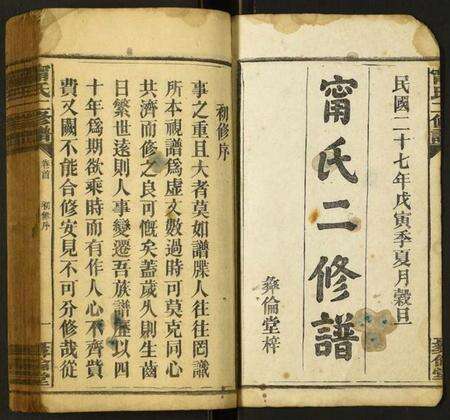 民國二十七年戊寅季夏月穀旦
甯氏二修譜
彝倫堂梓
甯氏二修譜
彝倫堂
初修序
事之重且大者莫如譜牒人往往罔識
所本視譜爲虛文數過時可莫克同心
共濟而修之良可慨矣蓋歲久則生齒
日繁世遠則人事變遷吾族譜歷以四
十年爲期欲乘時而有作人心不齊貲
費又匱不能合修安見不可分修哉從
甯氏二修譜
卷首
初修序
一
彝倫堂